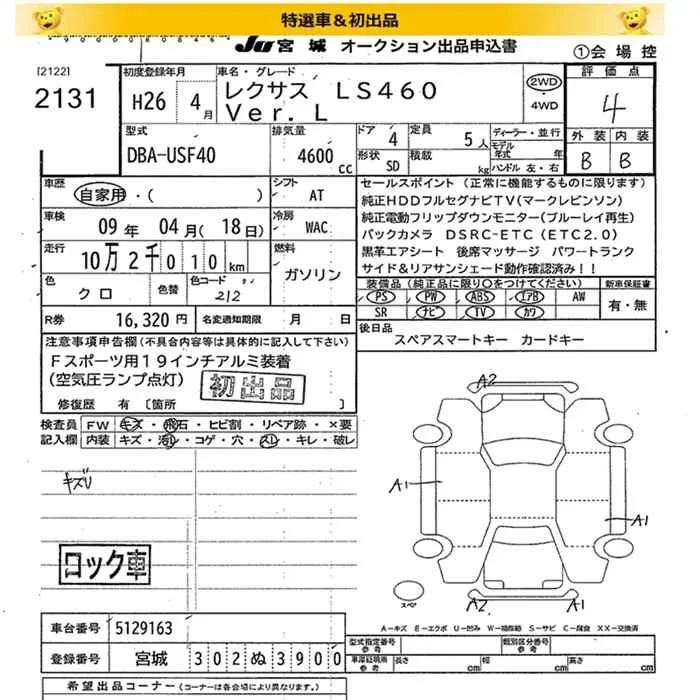 特選車＆初出品
JU 宮城 オークション出品申込書
①会場控
[2122]
2131
初度登録年月
H26 4月
車名・グレード
レクサス LS460
Ver. L
2WD
・
4WD
評価点
4
外装 内装
B B
型式
DBA-USF40
排気量
4600 cc
ドア 4
定員 5人
形状 SD
積載 kg
ディーラー・並行
モデル年式 年
ハンドル 左・右
車歴
自家用・( )
シフト
AT
車検
09年 04月(18日)
冷房
WAC
走行
10万2千010km
燃料
ガソリン
色
クロ
色替
色コード
212
R券 16,320円
名変通知期限 月 日
セールスポイント（正常に機能するものに限ります）
純正HDDフルセグナビTV(マークレビンソン)
純正電動フリップダウンモニター(ブルーレイ再生)
バックカメラ DSRC-ETC (ETC2.0)
黒革エアシート 後席マッサージ パワートランク
サイド＆リアサンシェード動作確認済み！！
装備品（純正品に限り〇をつけてください）
PS PW ABS エアB AW
SR ナビ TV カワ
新車保証書
有・無
後日品
スペアスマートキー カードキー
注意事項申告欄(不具合内容等は具体的に記入して下さい)
Fスポーツ用19インチアルミ装着
(空気圧ランプ点灯)
初出品
修復歴 有 〔箇所 〕
検査員記入欄
FW キズ・飛石・ヒビ割・リペア跡・×要
内装 キズ・汚れ・コゲ・穴・スレ・キレ・破レ
キズU
ロック車
A2
A1
A1
スペア
A2
A1
A－キズ E－エクボ U－凹み W－補修跡 S－サビ C－腐食 XX－交換済
車台番号 5129163
登録番号 宮城 302 ぬ 3900
型式指定番号 参考
類別区分番号 参考
車庫証明用 参考
長さ cm
幅 cm
高さ cm
希望出品コーナー(コーナーは各会場により異なります。)